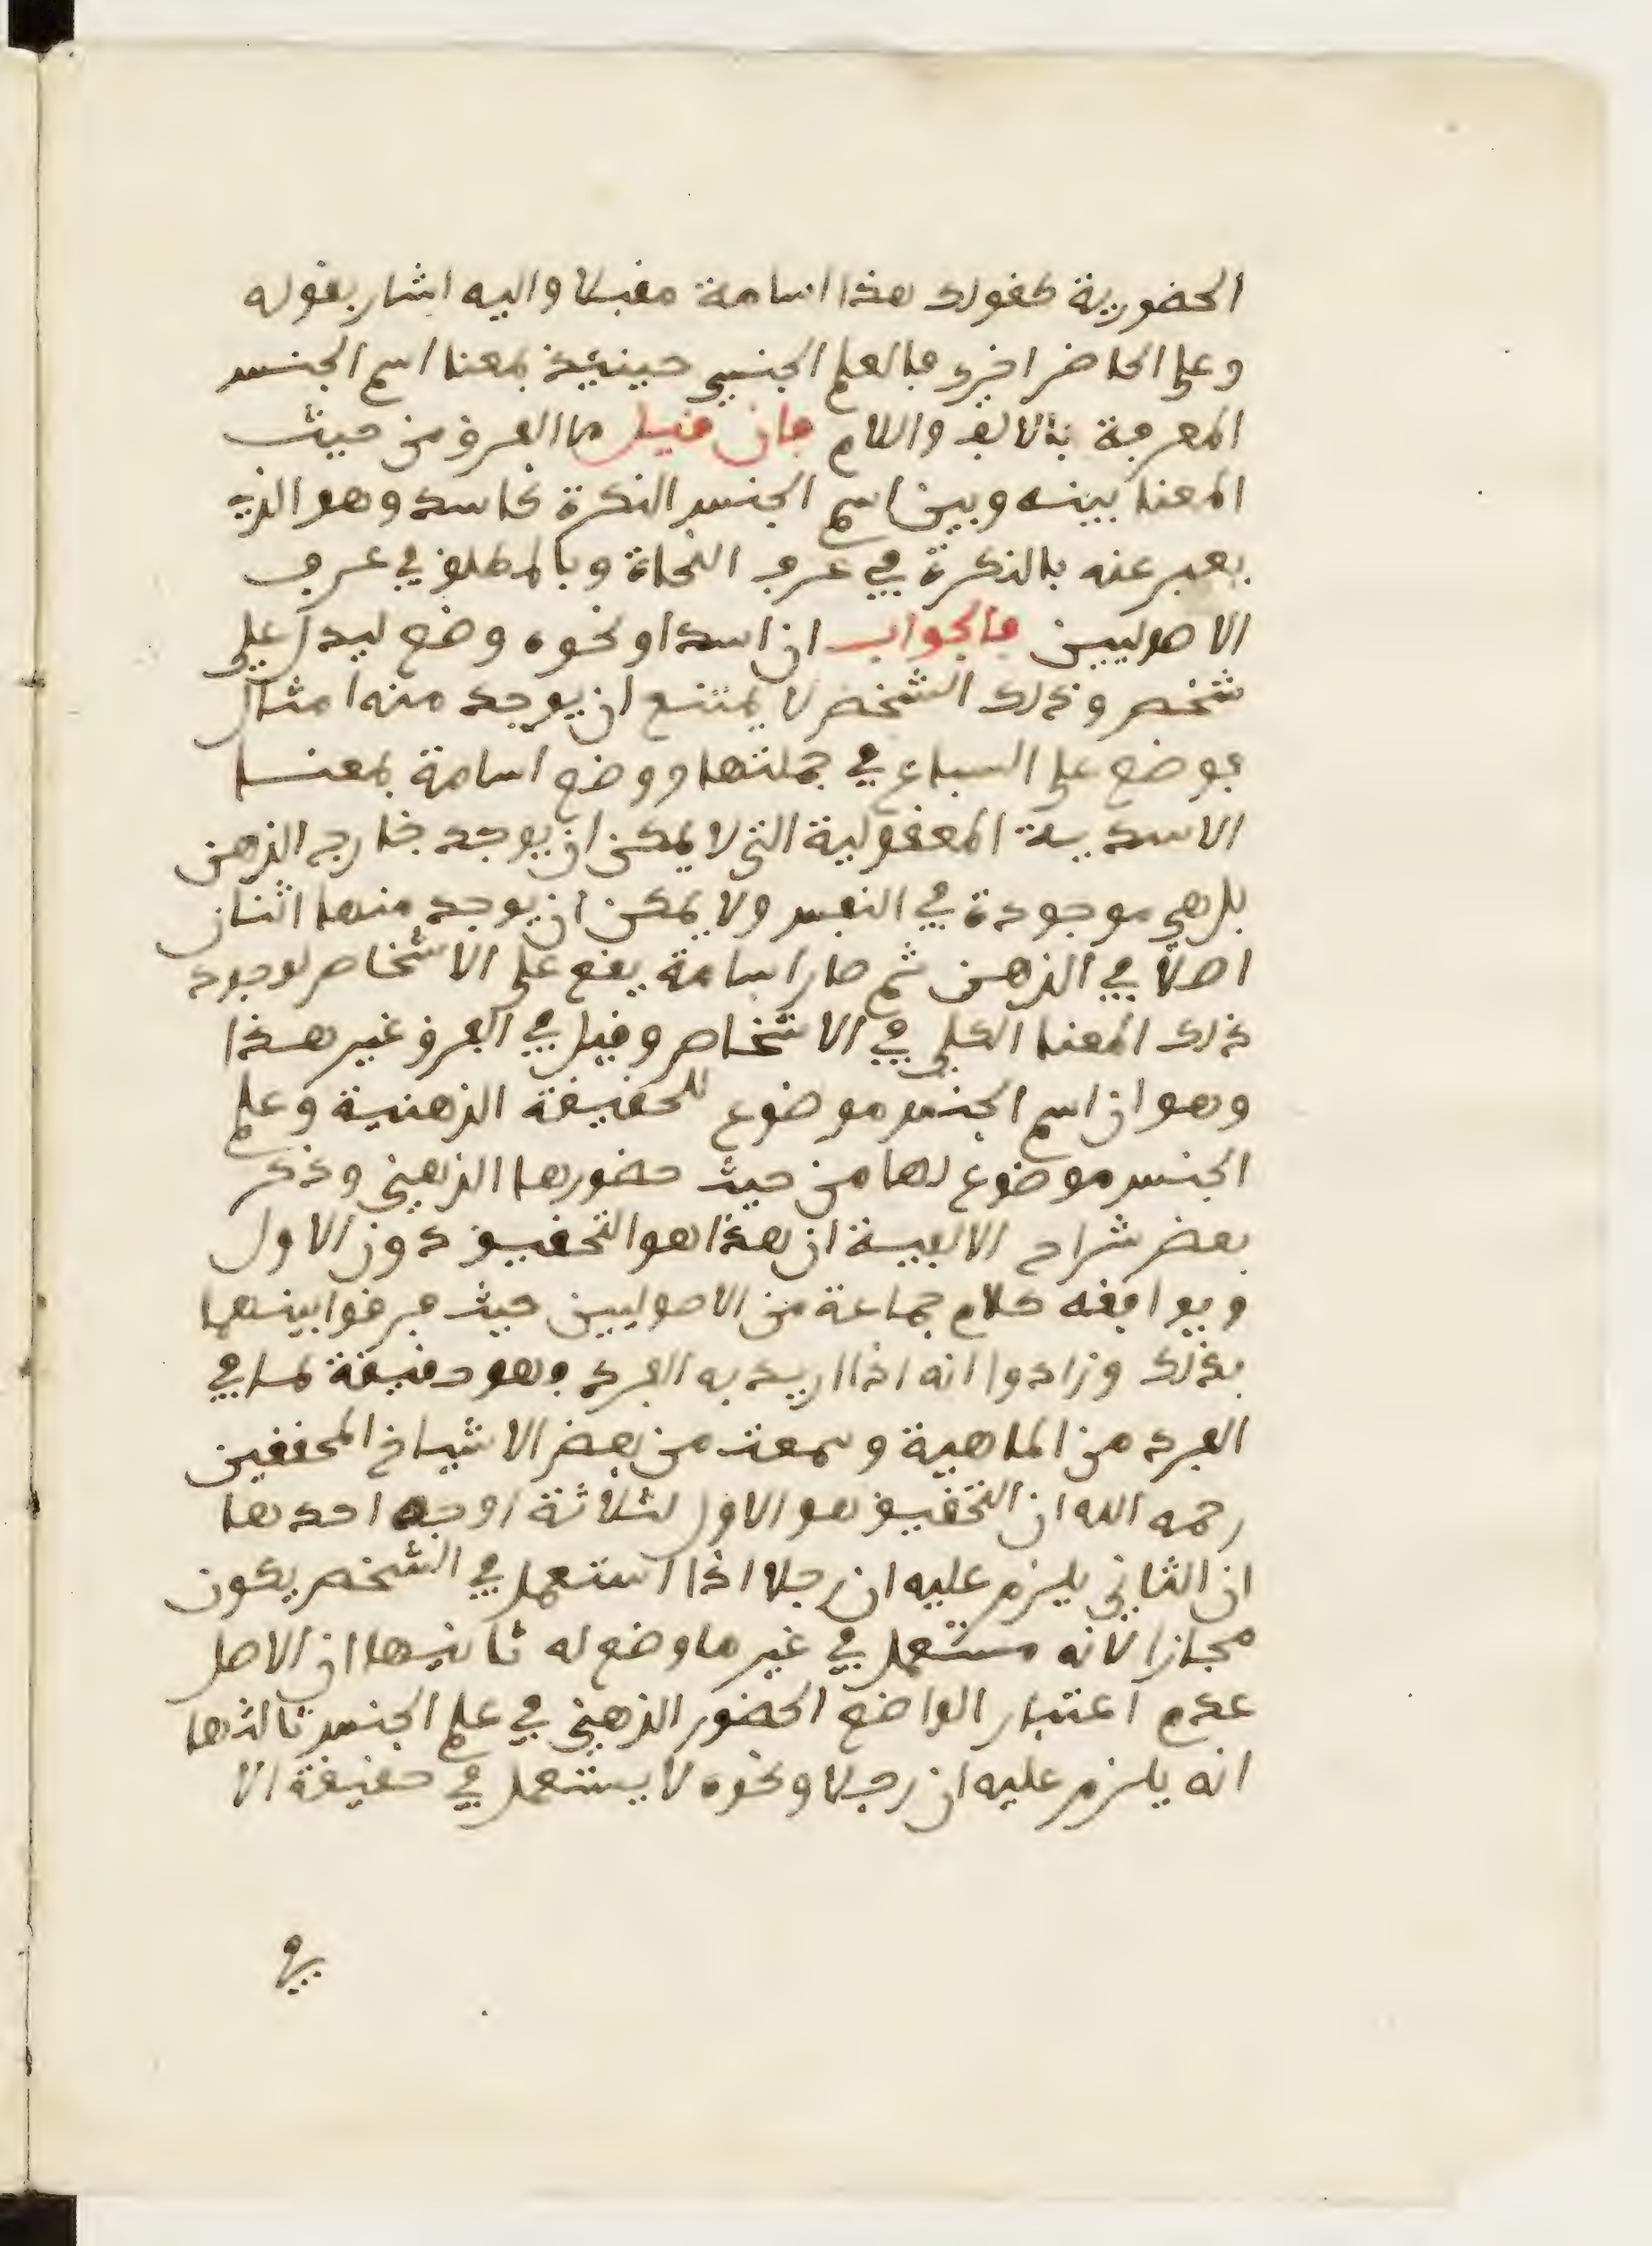 الحضورية كقولك هذا اسامة مقبلا واليه اشار بقوله
وعلى الحاضر اخرى فالعلم الجنسي حينئذ بمعنا اسم الجنس
المعرفة بالالف واللام فان قيل ما الفرق من حيث
المعنا بينه وبين اسم الجنس النكرة كاسد وهو الذي
يعبر عنه بالنكرة في عرف النحاة وبالمطلق في عرف
الاصوليين فالجواب ان اسدا ونحوه وضع ليدل على
شخص وذلك الشخص لا يمتنع ان يوجد منه امثال
فوضع على السباع في جملتها ووضع اسامة بمعنا
الاسدية المعقولية التي لا يمكن ان يوجد خارج الذهن
بل هي موجودة في النفس ولا يمكن ان يوجد منها اثنان
اصلا في الذهن ثم صار اسامة يقع على الاشخاص لوجود
ذلك المعنا الكلي في الاشخاص وقيل في الفرق غير هذا
وهو ان اسم الجنس موضوع للحقيقة الذهنية وعلم
الجنس موضوع لها من حيث حضورها الذهني وذكر
بعض شراح الالفية ان هذا هو التحقيق دون الاول
ويوافقه كلام جماعة من الاصوليين حيث فرقوا بينهما
بذلك وزادوا انه اذا اريد به الفرد فهو حقيقة لما في
الفرد من الماهية وسمعت من بعض الاشياخ المحققين
رحمه الله ان التحقيق هو الاول لثلاثة اوجه احدها
ان الثاني يلزم عليه ان رجلا اذا استعمل في الشخص يكون
مجازا لانه مستعمل في غير ما وضع له ثانيها ان الاصل
عدم اعتبار الواضع الحضور الذهني في علم الجنس ثالثها
انه يلزم عليه ان رجلا ونحوه لا يستعمل في حقيقة الا
في